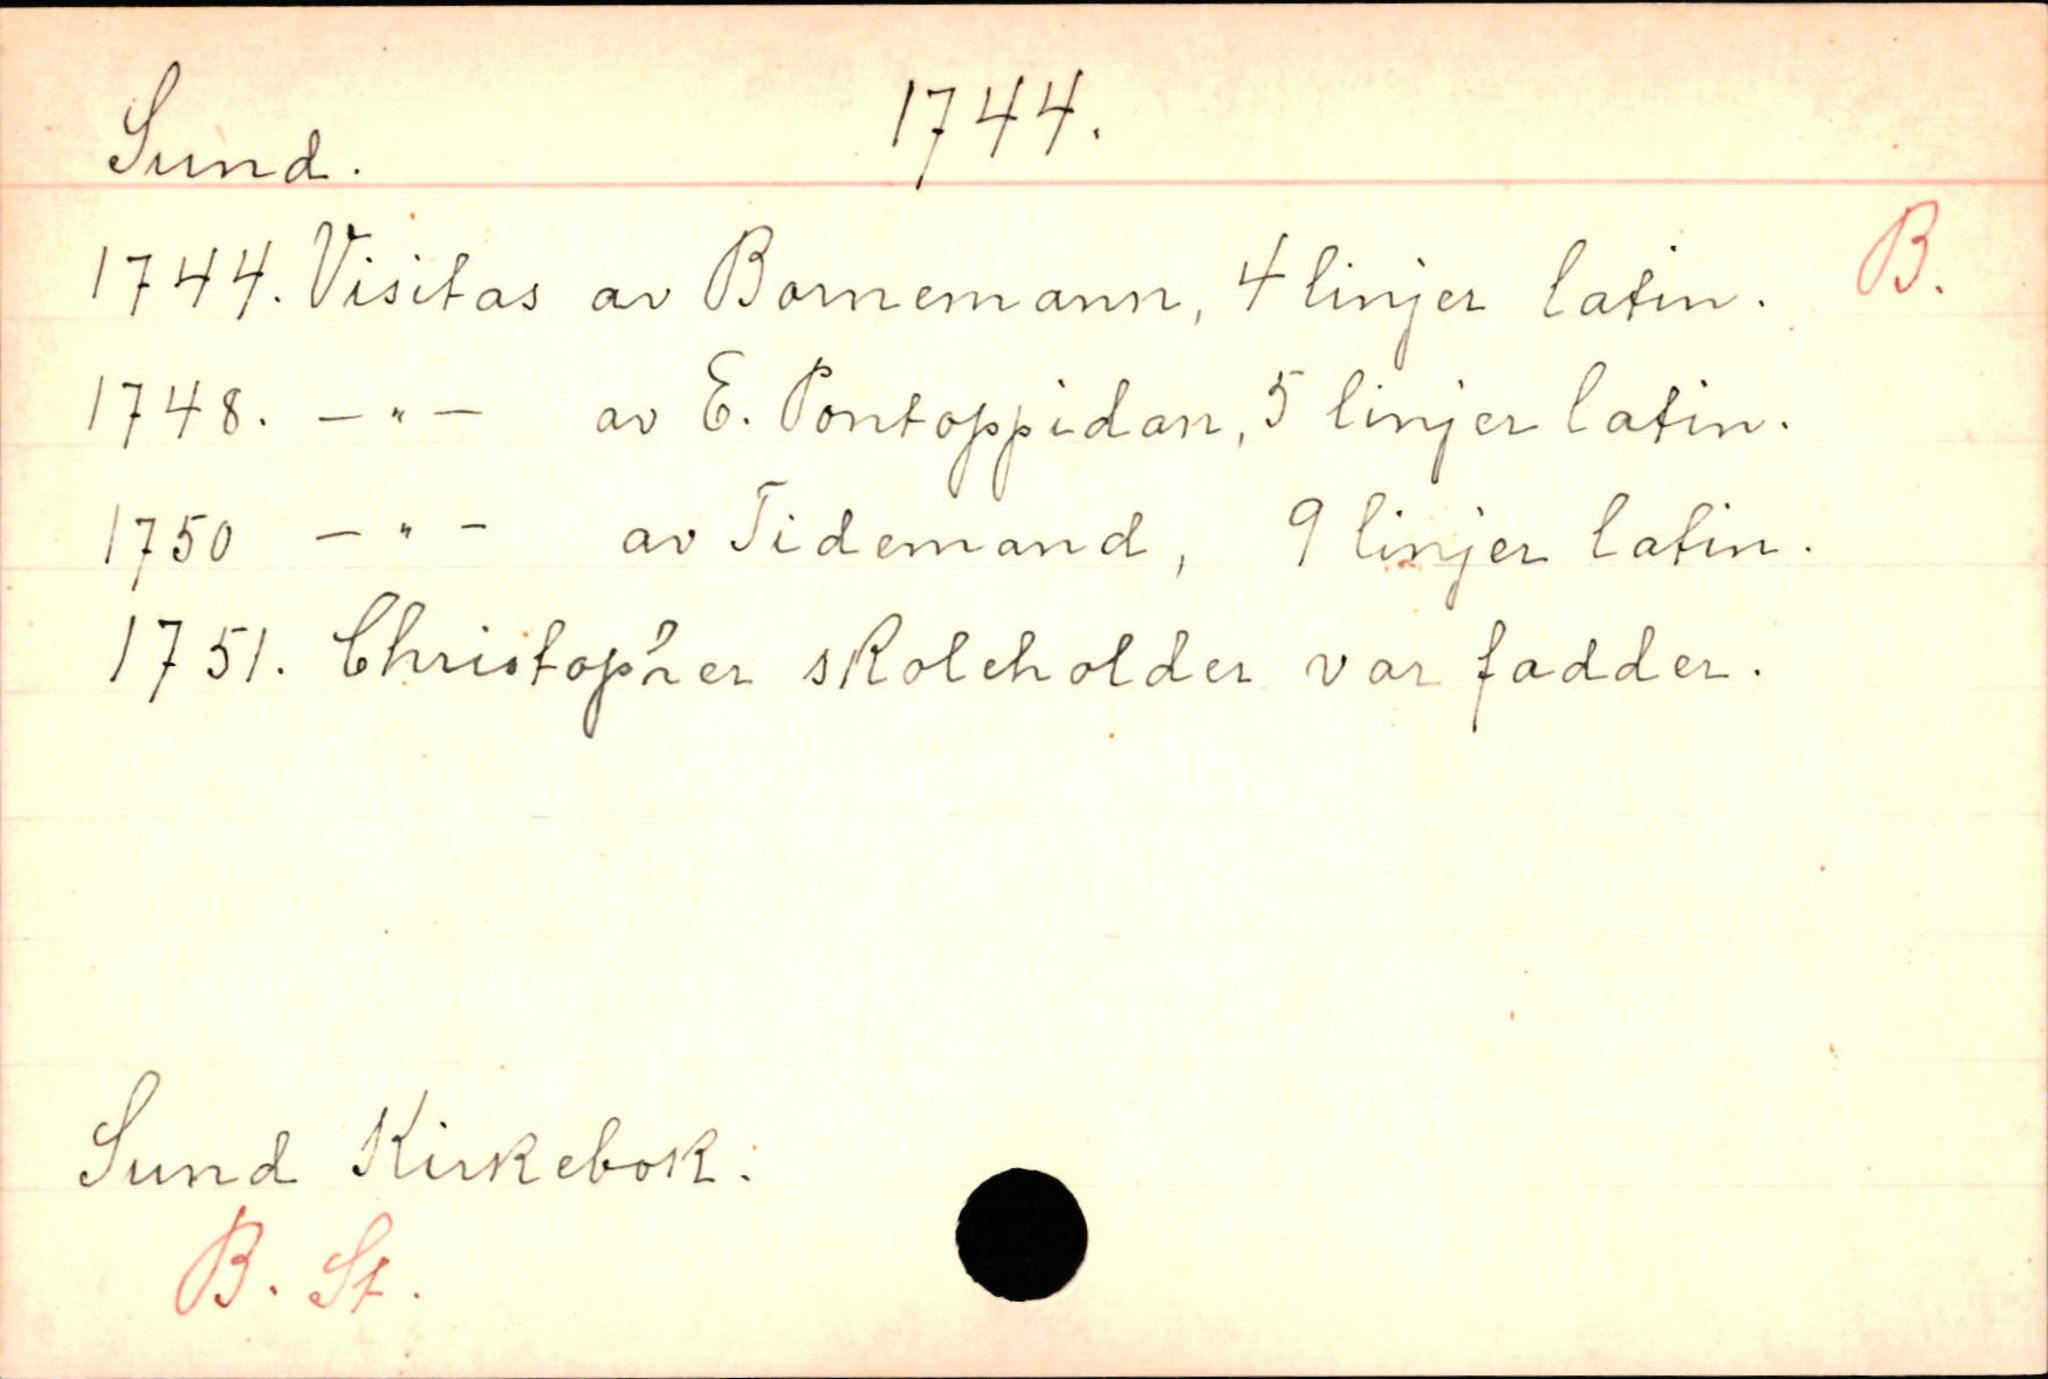 Sund. 1744.
1744. Visitas av Bornemann, 4 linjer latin. B.
1748. — " — av E. Pontoppidan, 5 linjer latin.
1750 — " — av Tidemand, 9 linjer latin.
1751. Christopher skoleholder var fadder.
Sund Kirkebok.
B. St.